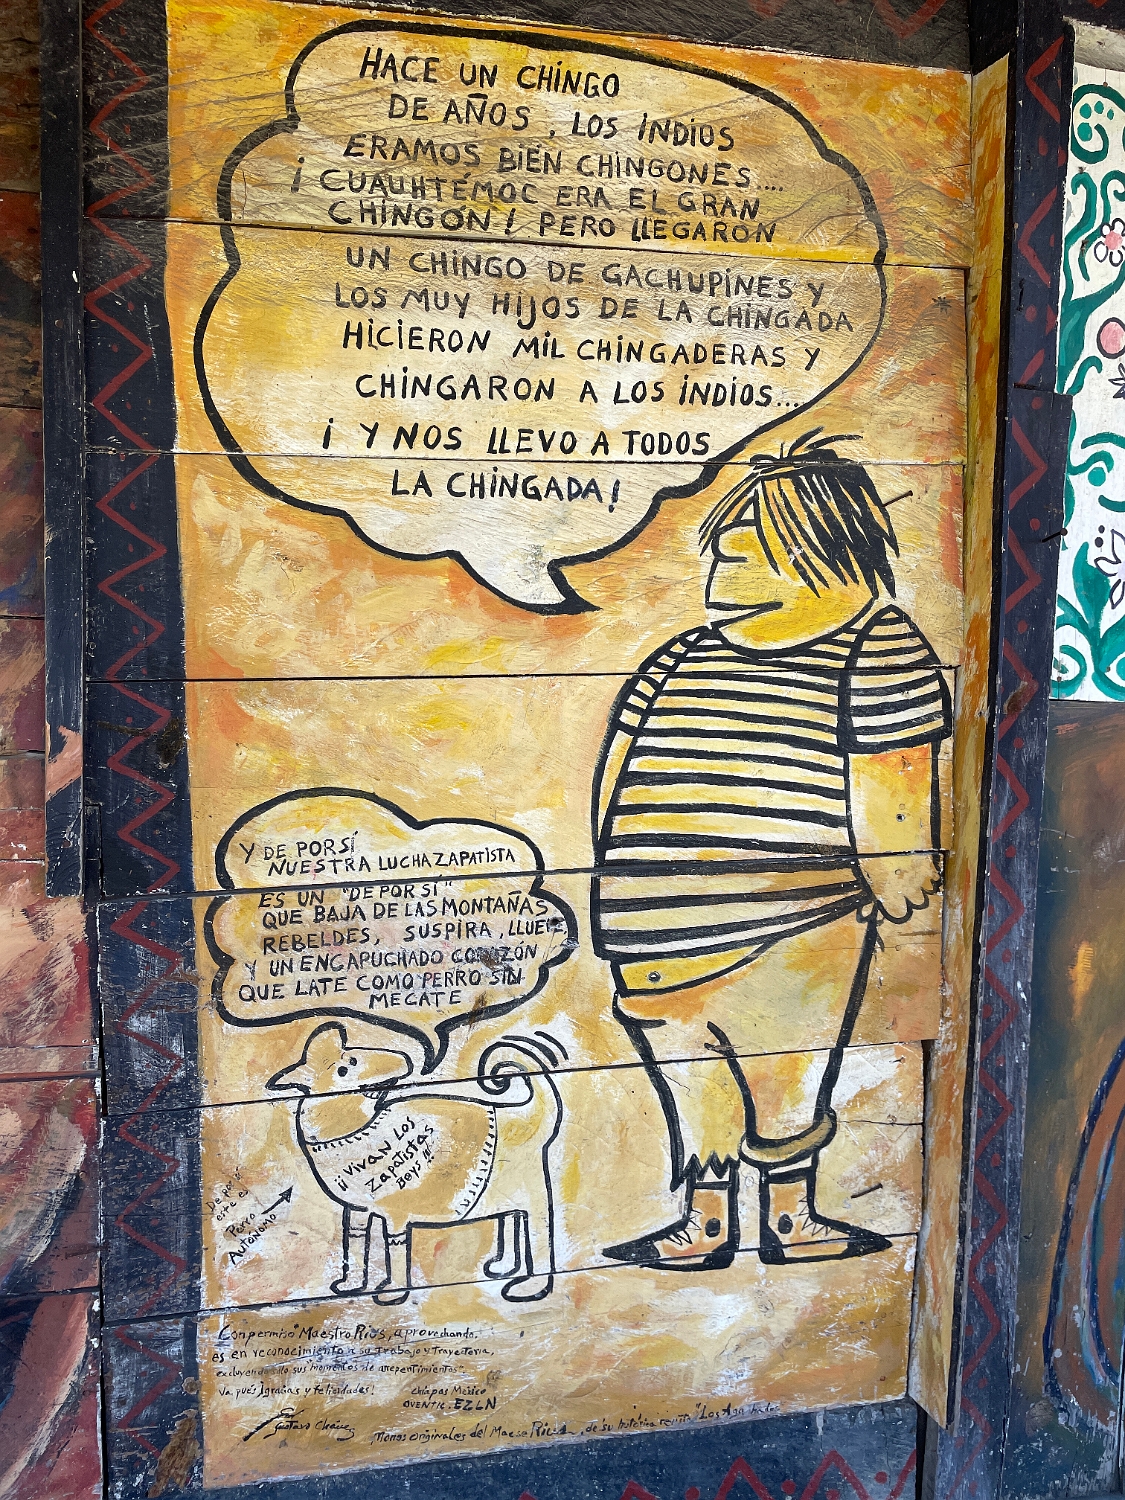 HACE UN CHINGO
DE AÑOS, LOS INDIOS
ERAMOS BIEN CHINGONES....
¡ CUAUHTÉMOC ERA EL GRAN
CHINGON ! PERO LLEGARON
UN CHINGO DE GACHUPINES Y
LOS MUY HIJOS DE LA CHINGADA
HICIERON MIL CHINGADERAS Y
CHINGARON A LOS INDIOS....
¡ Y NOS LLEVO A TODOS
LA CHINGADA !
Y DE POR SÍ
NUESTRA LUCHA ZAPATISTA
ES UN "DE POR SÍ"
QUE BAJA DE LAS MONTAÑAS
REBELDES, SUSPIRA, LLUEVE,
Y UN ENCAPUCHADO CORAZÓN
QUE LATE COMO PERRO SIN
MECATE
¡¡ VIVAN LOS
ZAPATISTAS
BOYS !!!
De por sí
este es
Perro
Autónomo
Con permiso "Maestro Rius, aprovechando,
es en reconocimiento a su Trabajo y Trayectoria,
excluyendo sus "momentos de arrepentimientos".
Va pués ¡gracias y felicidades!
Chiapas México
OVENTIC. EZLN
Gustavo Chávez
Monos originales del Maese Rius, de su historica revista "Los Agachados